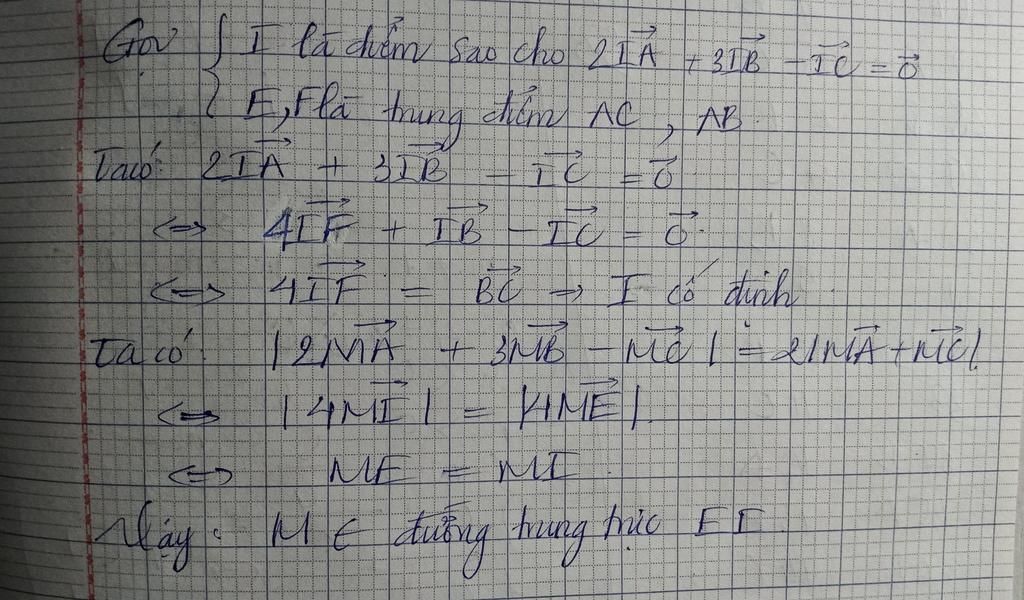 Gọi { I là điểm sao cho 2\overrightarrow{IA} + 3\overrightarrow{IB} - \overrightarrow{IC} = \vec{0}
E, F là trung điểm AC, AB.
Ta có: 2\overrightarrow{IA} + 3\overrightarrow{IB} - \overrightarrow{IC} = \vec{0}
⇔ 4\overrightarrow{IF} + \overrightarrow{IB} - \overrightarrow{IC} = \vec{0}.
⇔ 4\overrightarrow{IF} = \overrightarrow{BC} → I cố định.
Ta có: |2\overrightarrow{MA} + 3\overrightarrow{MB} - \overrightarrow{MC}| = 2|\overrightarrow{MA} + \overrightarrow{MC}|.
⇔ |4\overrightarrow{MI}| = |4\overrightarrow{ME}|.
⇔ ME = MI.
Vậy: M ∈ đường trung trực EI.